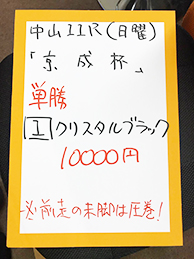 中山11R(日曜)
「京成杯」
単勝
1 クリスタルブラック
10000円
※前走の末脚は圧巻!